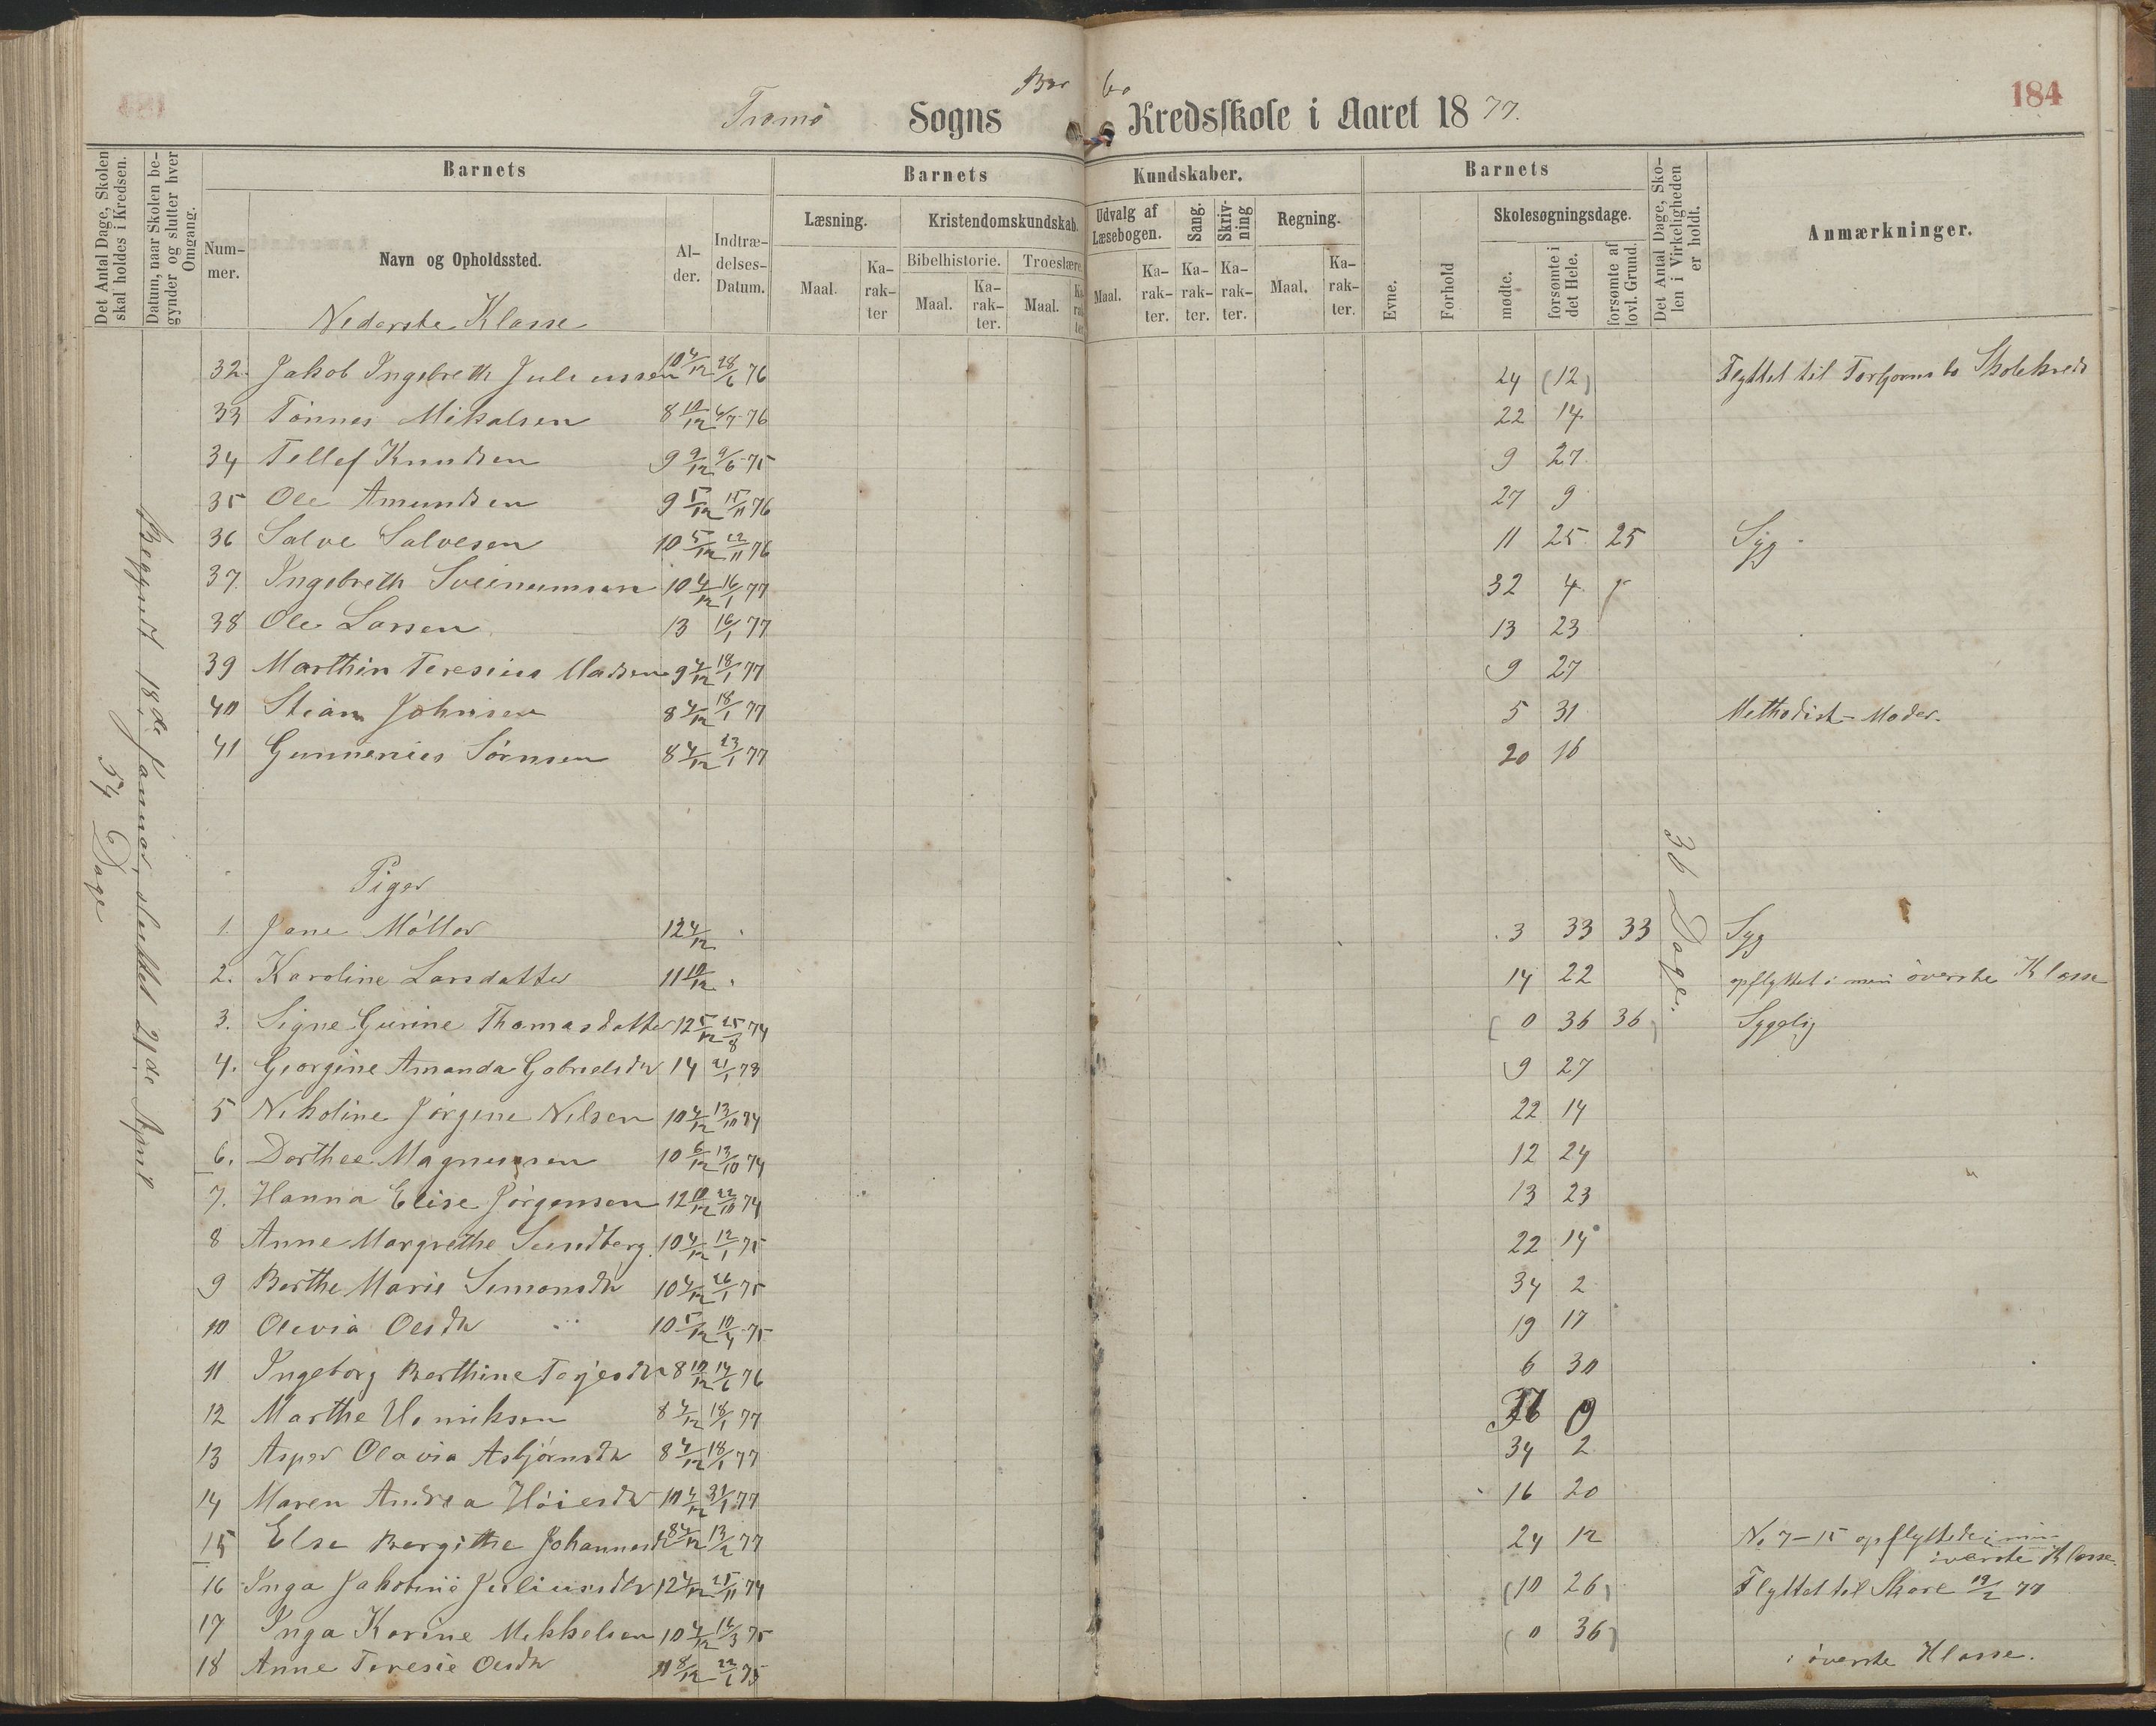 184
Tromø Sogns Bar bo Kredsskole i Aaret 1877.
Det Antal Dage, Skolen skal holdes i Kredsen.
Datum, naar Skolen begynder og slutter hver Omgang.
Barnets
Barnets Kundskaber.
Barnets
Nummer.
Navn og Opholdssted.
Alder.
Indtrædelses-Datum.
Læsning.
Kristendomskundskab.
Bibelhistorie.
Troeslære.
Udvalg af Læsebogen.
Sang.
Skrivning
Regning.
Maal. Karakter
Maal. Karakter.
Maal.
Maal. Karakter.
Karakter.
Karakter.
Maal. Karakter.
Evne.
Forhold
Skolesøgningsdage.
mødte.
forsømte i det Hele.
forsømte af lovl. Grund.
Det Antal Dage, Skolen i Virkeligheden er holdt.
Anmærkninger.
Nederste Klasse
54 Dage
Begyndt 18de Januar, sluttet 21de April
36 Dage.
32. Jakob Ingebreth Juliussen 10 4/12 28/6 76 24 (12) Flyttet til Skolekreds
33 Tønnes Mikalsen 8 10/12 4/7 76 22 14
34 Tellef Knudsen 9 9/12 9/6 75 9 27
35 Ole Amundsen 9 5/12 15/11 76 27 9
36 Salve Salvesen 10 5/12 22/11 76 11 25 25 Syg
37. Ingebreth 10 4/12 16/1 77 32 4
38 Ole Larsen 13 16/1 77 13 23
39 Marthin Teresius Madsen 9 4/12 18/1 77 9 27
40 Stian Johnsen 8 4/12 18/1 77 5 31 Methodist-Moder.
41 Gunnerius Sørnsen 8 4/12 23/1 77 20 16
Piger
1. Jane Møller 12 4/12 3 33 33 Syg
2. Karoline Larsdatter 11 10/12 14 22 opflyttet i min øverste Klasse
3. Signe Gurine Thomasdatter 12 5/12 25/8 74 (0 36 36) Sygelig
4. Georgine Amanda Gabrielsdtr 14 21/1 73 9 27
5 Nikoline Jørgine Nilsen 10 4/12 13/10 74 22 14
6. Dorthee Magnussen 10 6/12 13/10 74 12 24
7. Hanna Elise Jørgensen 12 10/12 22/10 74 13 23
8 Anne Margrethe Sundberg 10 4/12 12/1 75 22 14
9 Berthe Marie Simonsdtr 10 4/12 26/1 75 34 2
10 Olevia Olsdtr 10 5/12 10/4 75 19 17
11 Ingeborg Berthine Terjesdtr 8 10/12 14/6 76 6 30
12 Marthe Henriksen 8 4/12 18/1 77 36 0
13 Olavia Asbjørnsdtr 8 4/12 18/1 77 34 2
14 Maren Andrea Høiesdtr 10 4/12 31/1 77 16 20
15 Else Bergithe Johannesdtr 8 4/12 13/2 77 24 12 No 7-15 opflyttede i min øverste Klasse
16 Inga Jakobine Juliusdtr 12 4/12 25/11 74 (10 26) Flyttet til Skare 19/2 77
17 Inga Karine Mikkelsen 10 4/12 16/3 75 (0 36)
18 Anne Teresie Olsdtr 11 8/12 22/1 75 i øverste Klasse.